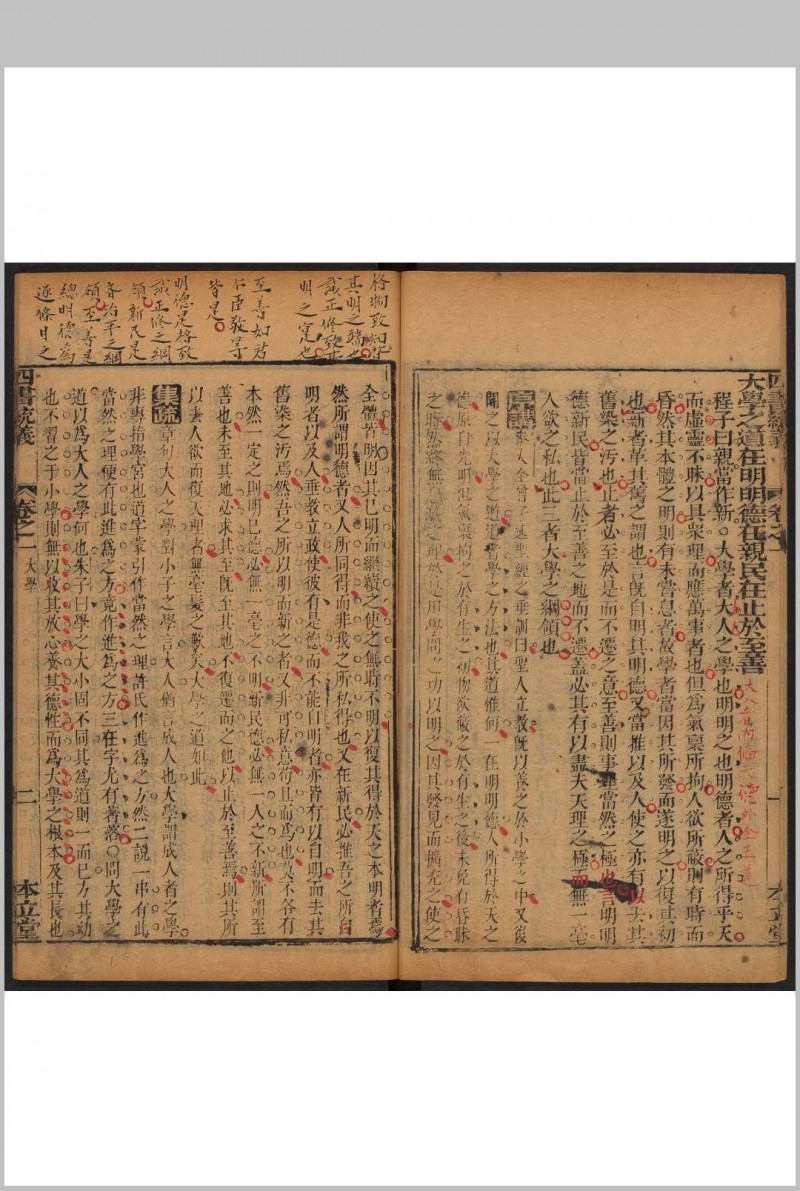 大學之道在明明德在親民在止於至善
程子曰親當作新。大學者大人之學也明明之也明德者人之所得乎天
而虛靈不昧以具眾理而應萬事者也但為氣稟所拘人欲所蔽則有時而
昏然其本體之明則有未嘗息者故學者當因其所發而遂明之以復其初
也新者革其舊之謂也言既自明其明德又當推以及人使之亦有以去其
舊染之汚也止者必至於是而不遷之意至善則事理當然之極也言明明
德新民皆當止於至善之地而不遷蓋必其有以盡夫天理之極而無一毫
人欲之私也此三者大學之綱領也
聖經之垂訓曰聖人立教既以養之於小學之中又復
開之以大學之道道者學之方法也其道惟何一在明明德人所得於天之
德原自光明但氣稟拘之於有生之初物欲蔽之於有生之後未免有昏昧
之時然終無之理於是用學問之功以明之因其發見而擴充之使之
一
本立堂
全體皆明因其已明而繼續之使之無時不明以復其得於天之本明者焉
然所謂明德者又人所同得而非我之所私得也又在新民必推吾之所自
明者以及人垂教立政使彼有是德而不能自明者亦皆有以自明而去其
舊染之汚焉然吾之所以明而新之者又非可私意苟且而為也莫不各有
本然一定之則明己德必無一毫之不明新民德必無一人之不新所謂至
善也未至其地必求其至既至其地不復遷而之他以止於至善焉則其所
以去人欲而復天理者無毫髮之歉矣大學之道如此
集疏章句大人之學對小子之學言大人猶言成人也大學謂成人者之學
非專指學宮也道字蒙引作當然之理許氏作進為之方然二說一串有此
當然之理便有此進為之方竟作進為之方三在字尤有著落○問大學之
道以為大人之學何也朱子曰學之大小固不同其為道則一而已方其幼
也不習之于小學則無以收其放心養其德性而為大學之根本及其長也
四書統義
卷之一
大學
二
本立堂
格物致知
其明之端也
誠正修致其
明之實也
至善如君
仁臣敬等
皆是
明德是格致
誠正修之綱
領新民是
齊治平之綱
領至善是
總明德為
逐條目之